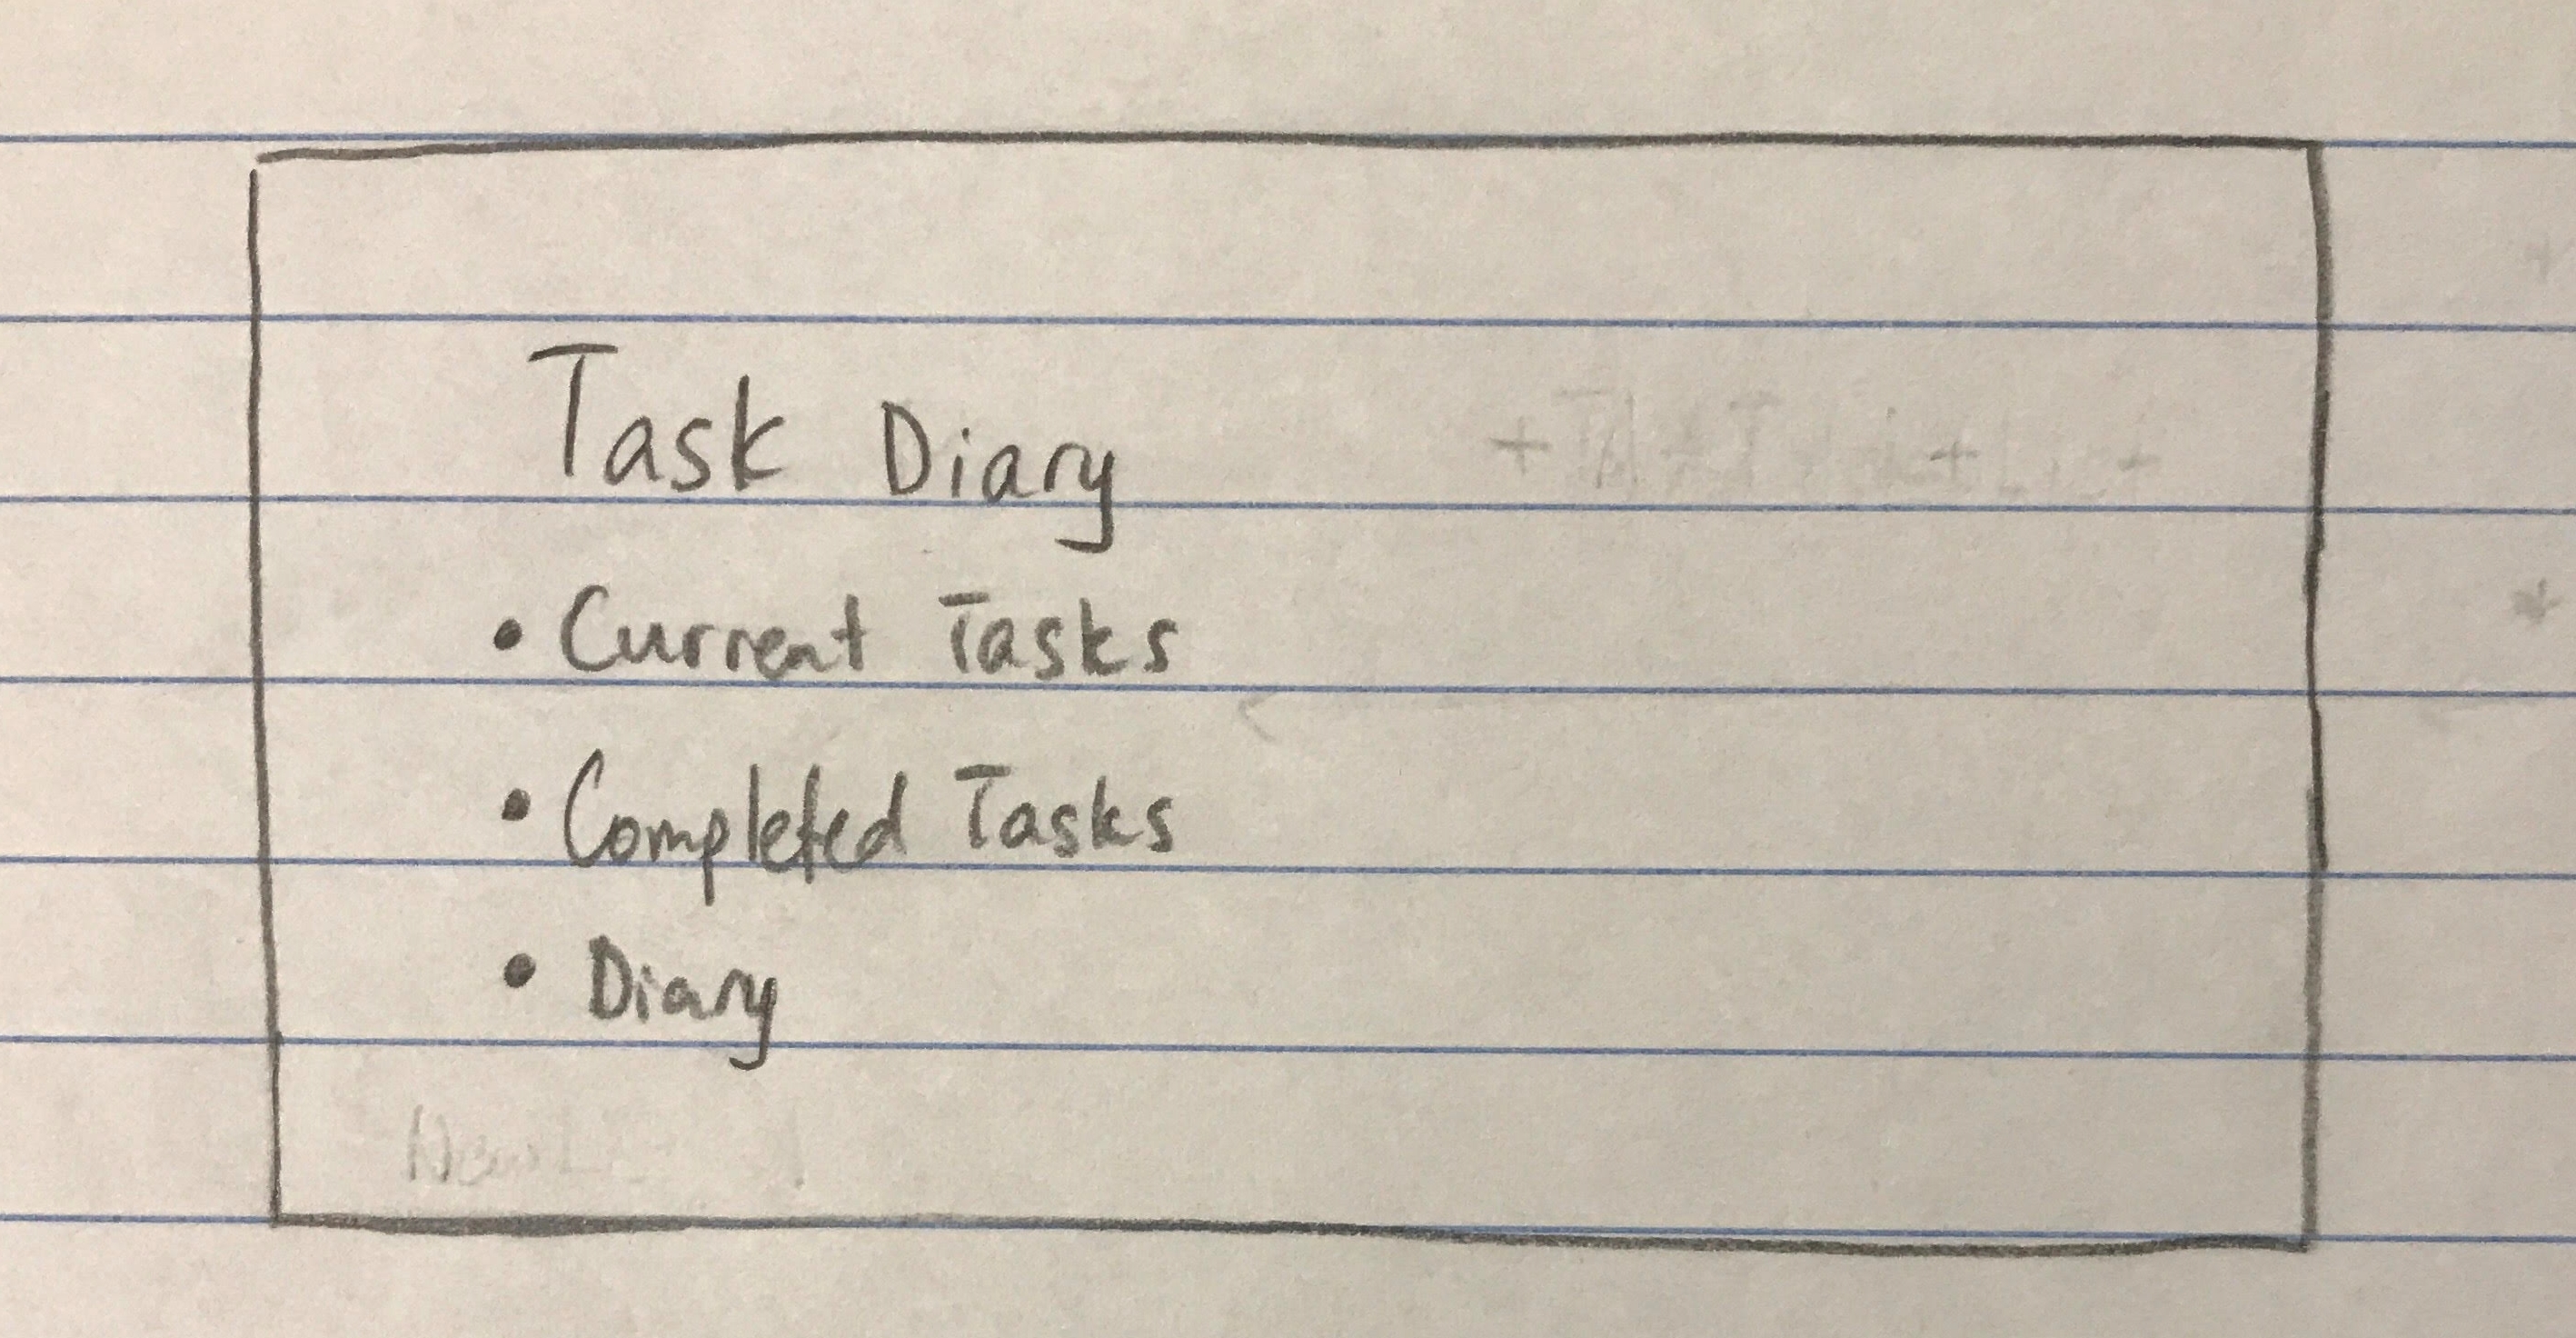 Task Diary
• Current Tasks
• Completed Tasks
• Diary